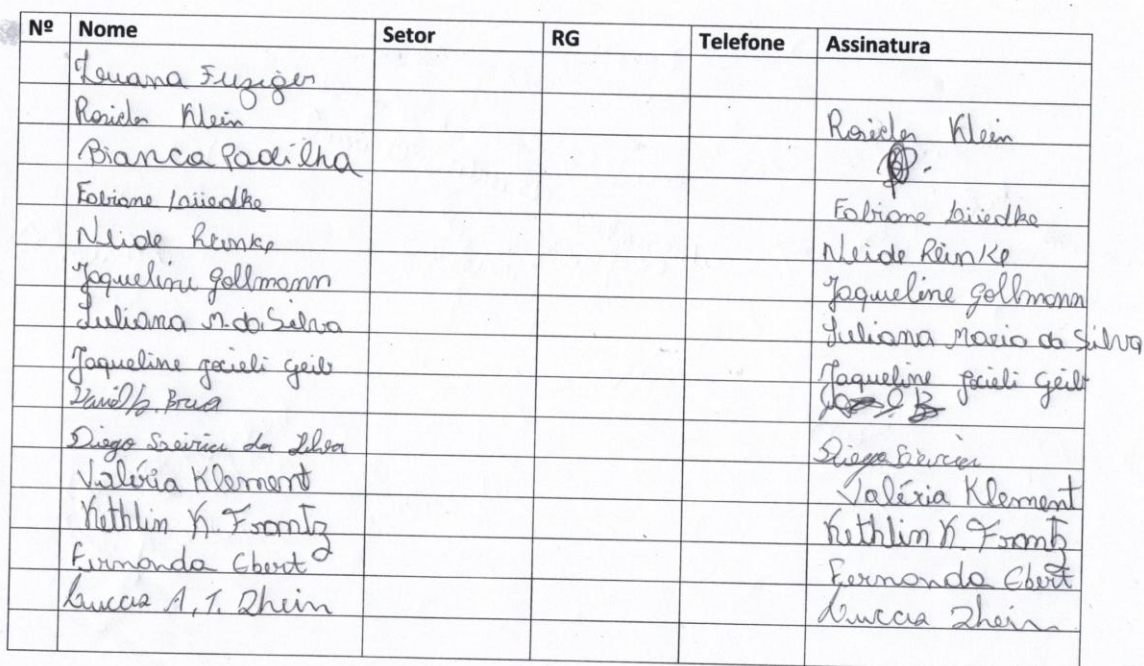 Nº Nome Setor RG Telefone Assinatura
Luana Fuziger
Rosicler Klein Rosicler Klein
Bianca Padilha
Fabiane Lüiedke Fabiane Lüiedke
Neide Reinke Neide Reinke
Jaqueline Gollmann Jaqueline Gollmann
Juliana M. da Silva Juliana Maria da Silva
Jaqueline Jocieli Geib Jaqueline Jocieli Geib
David
Diego da Silva Diego
Valéria Klement Valéria Klement
Kethlin K. Frantz Kethlin K. Frantz
Fernanda Ebert Fernanda Ebert
Luccia A. T. Rhein Luccia Rhein